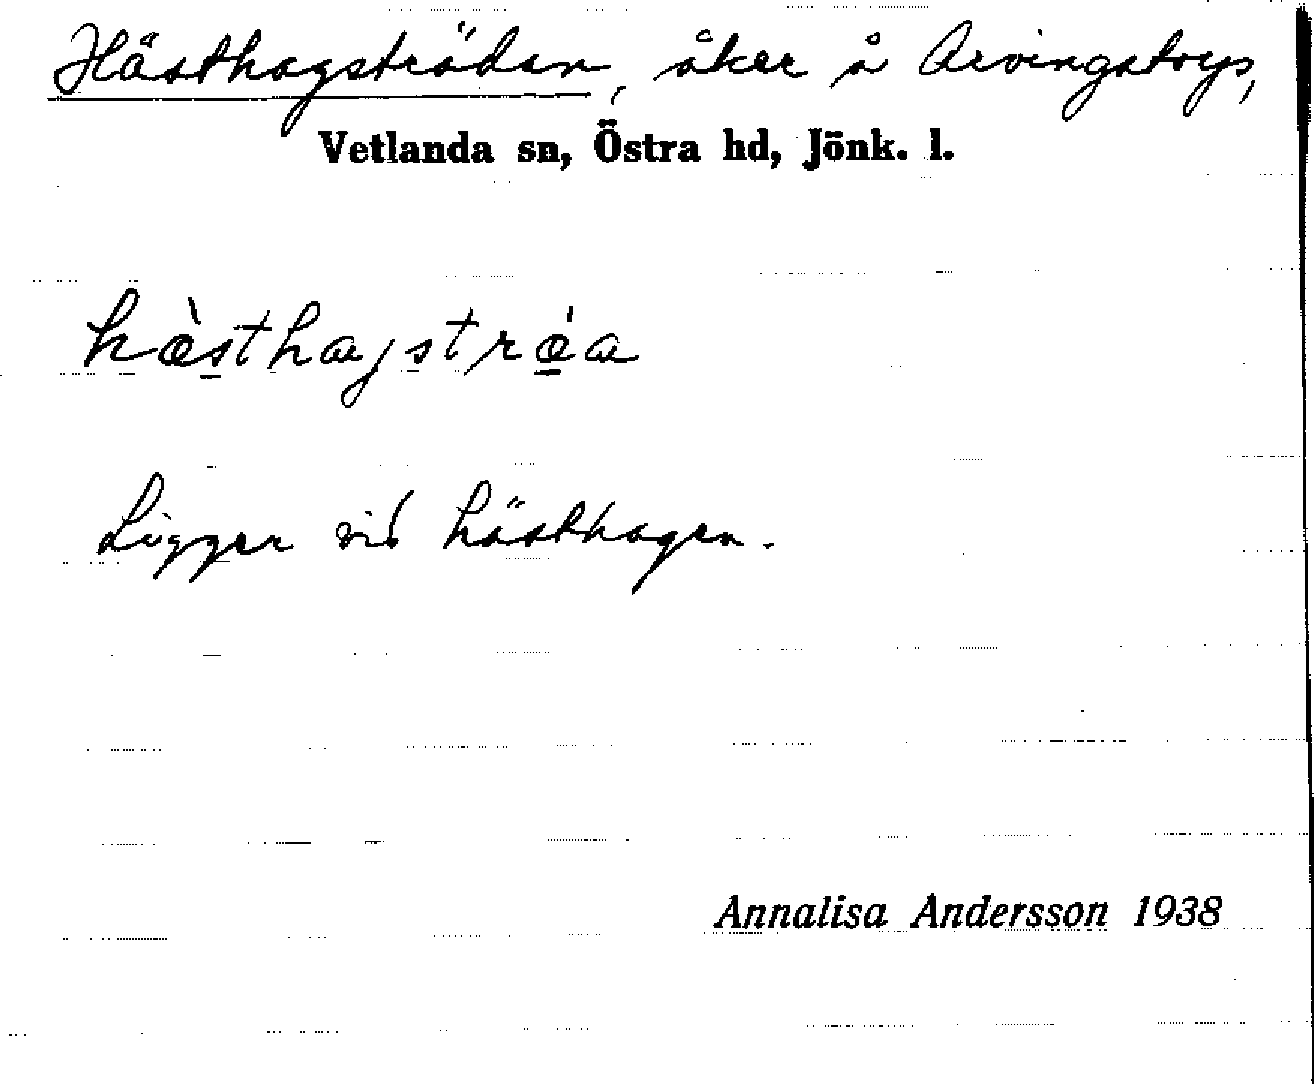 Hästhagsträdan, åker å Arvingstorp,
Vetlanda sn, Östra hd, Jönk. l.
hæ̀sthagstrǽa
Ligger vid hästhagen.
Annalisa Andersson 1938